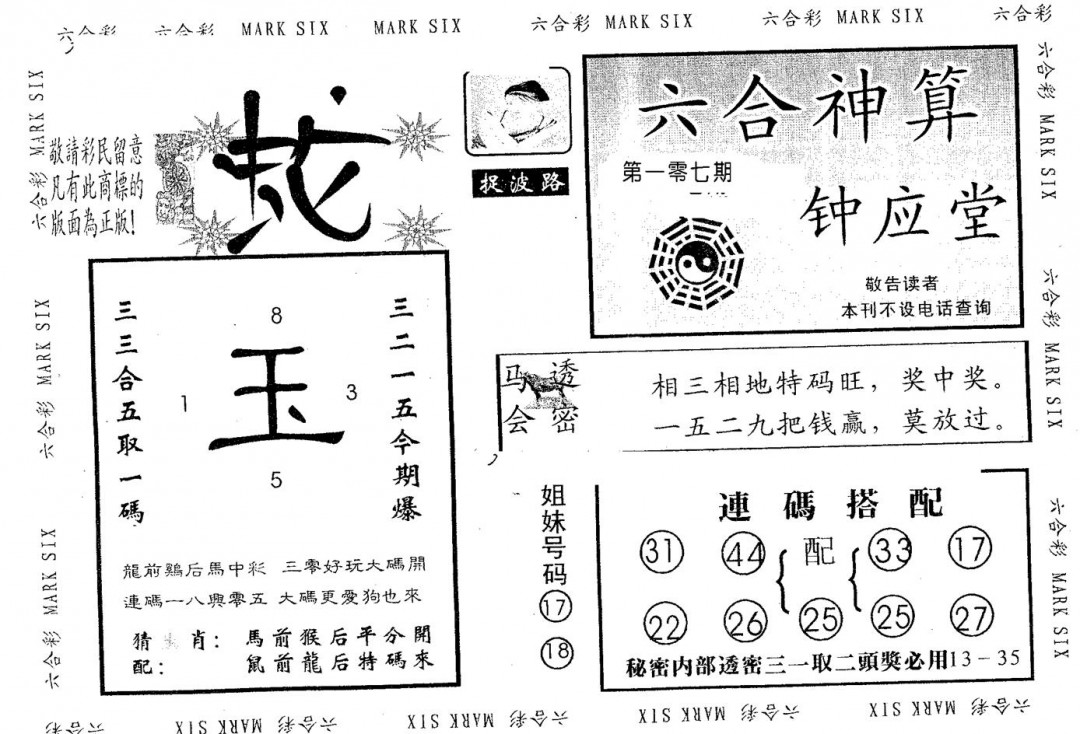 六合彩 六合彩 MARK SIX MARK SIX 六合彩 MARK SIX 六合彩 MARK SIX 六合彩
六合彩 MARK SIX
六合彩 MARK SIX
六合彩 MARK SIX
敬請彩民留意
凡有此商標的
版面為正版!
蛇
捉波路
六合神算
第一零七期
钟应堂
敬告读者
本刊不设电话查询
三三合五取一碼
8
1
玉
3
5
三二一五今期爆
龍前鷄后馬中彩 三零好玩大碼開
連碼一八興零五 大碼更愛狗也來
猜生肖: 馬前猴后平分開
配: 鼠前龍后特碼來
马会
透密
相三相地特码旺,奖中奖。
一五二九把钱赢,莫放过。
姐妹号码
17
18
連碼搭配
31 44 { 配 { 33 17
22 26 25 25 27
秘密内部透密三一取二頭獎必用13-35
六合彩 MARK SIX
六合彩 MARK SIX
六合彩 MARK SIX
六合彩 MARK SIX 六合彩 MARK SIX 六合彩 MARK SIX 六合彩 MARK SIX 六合彩